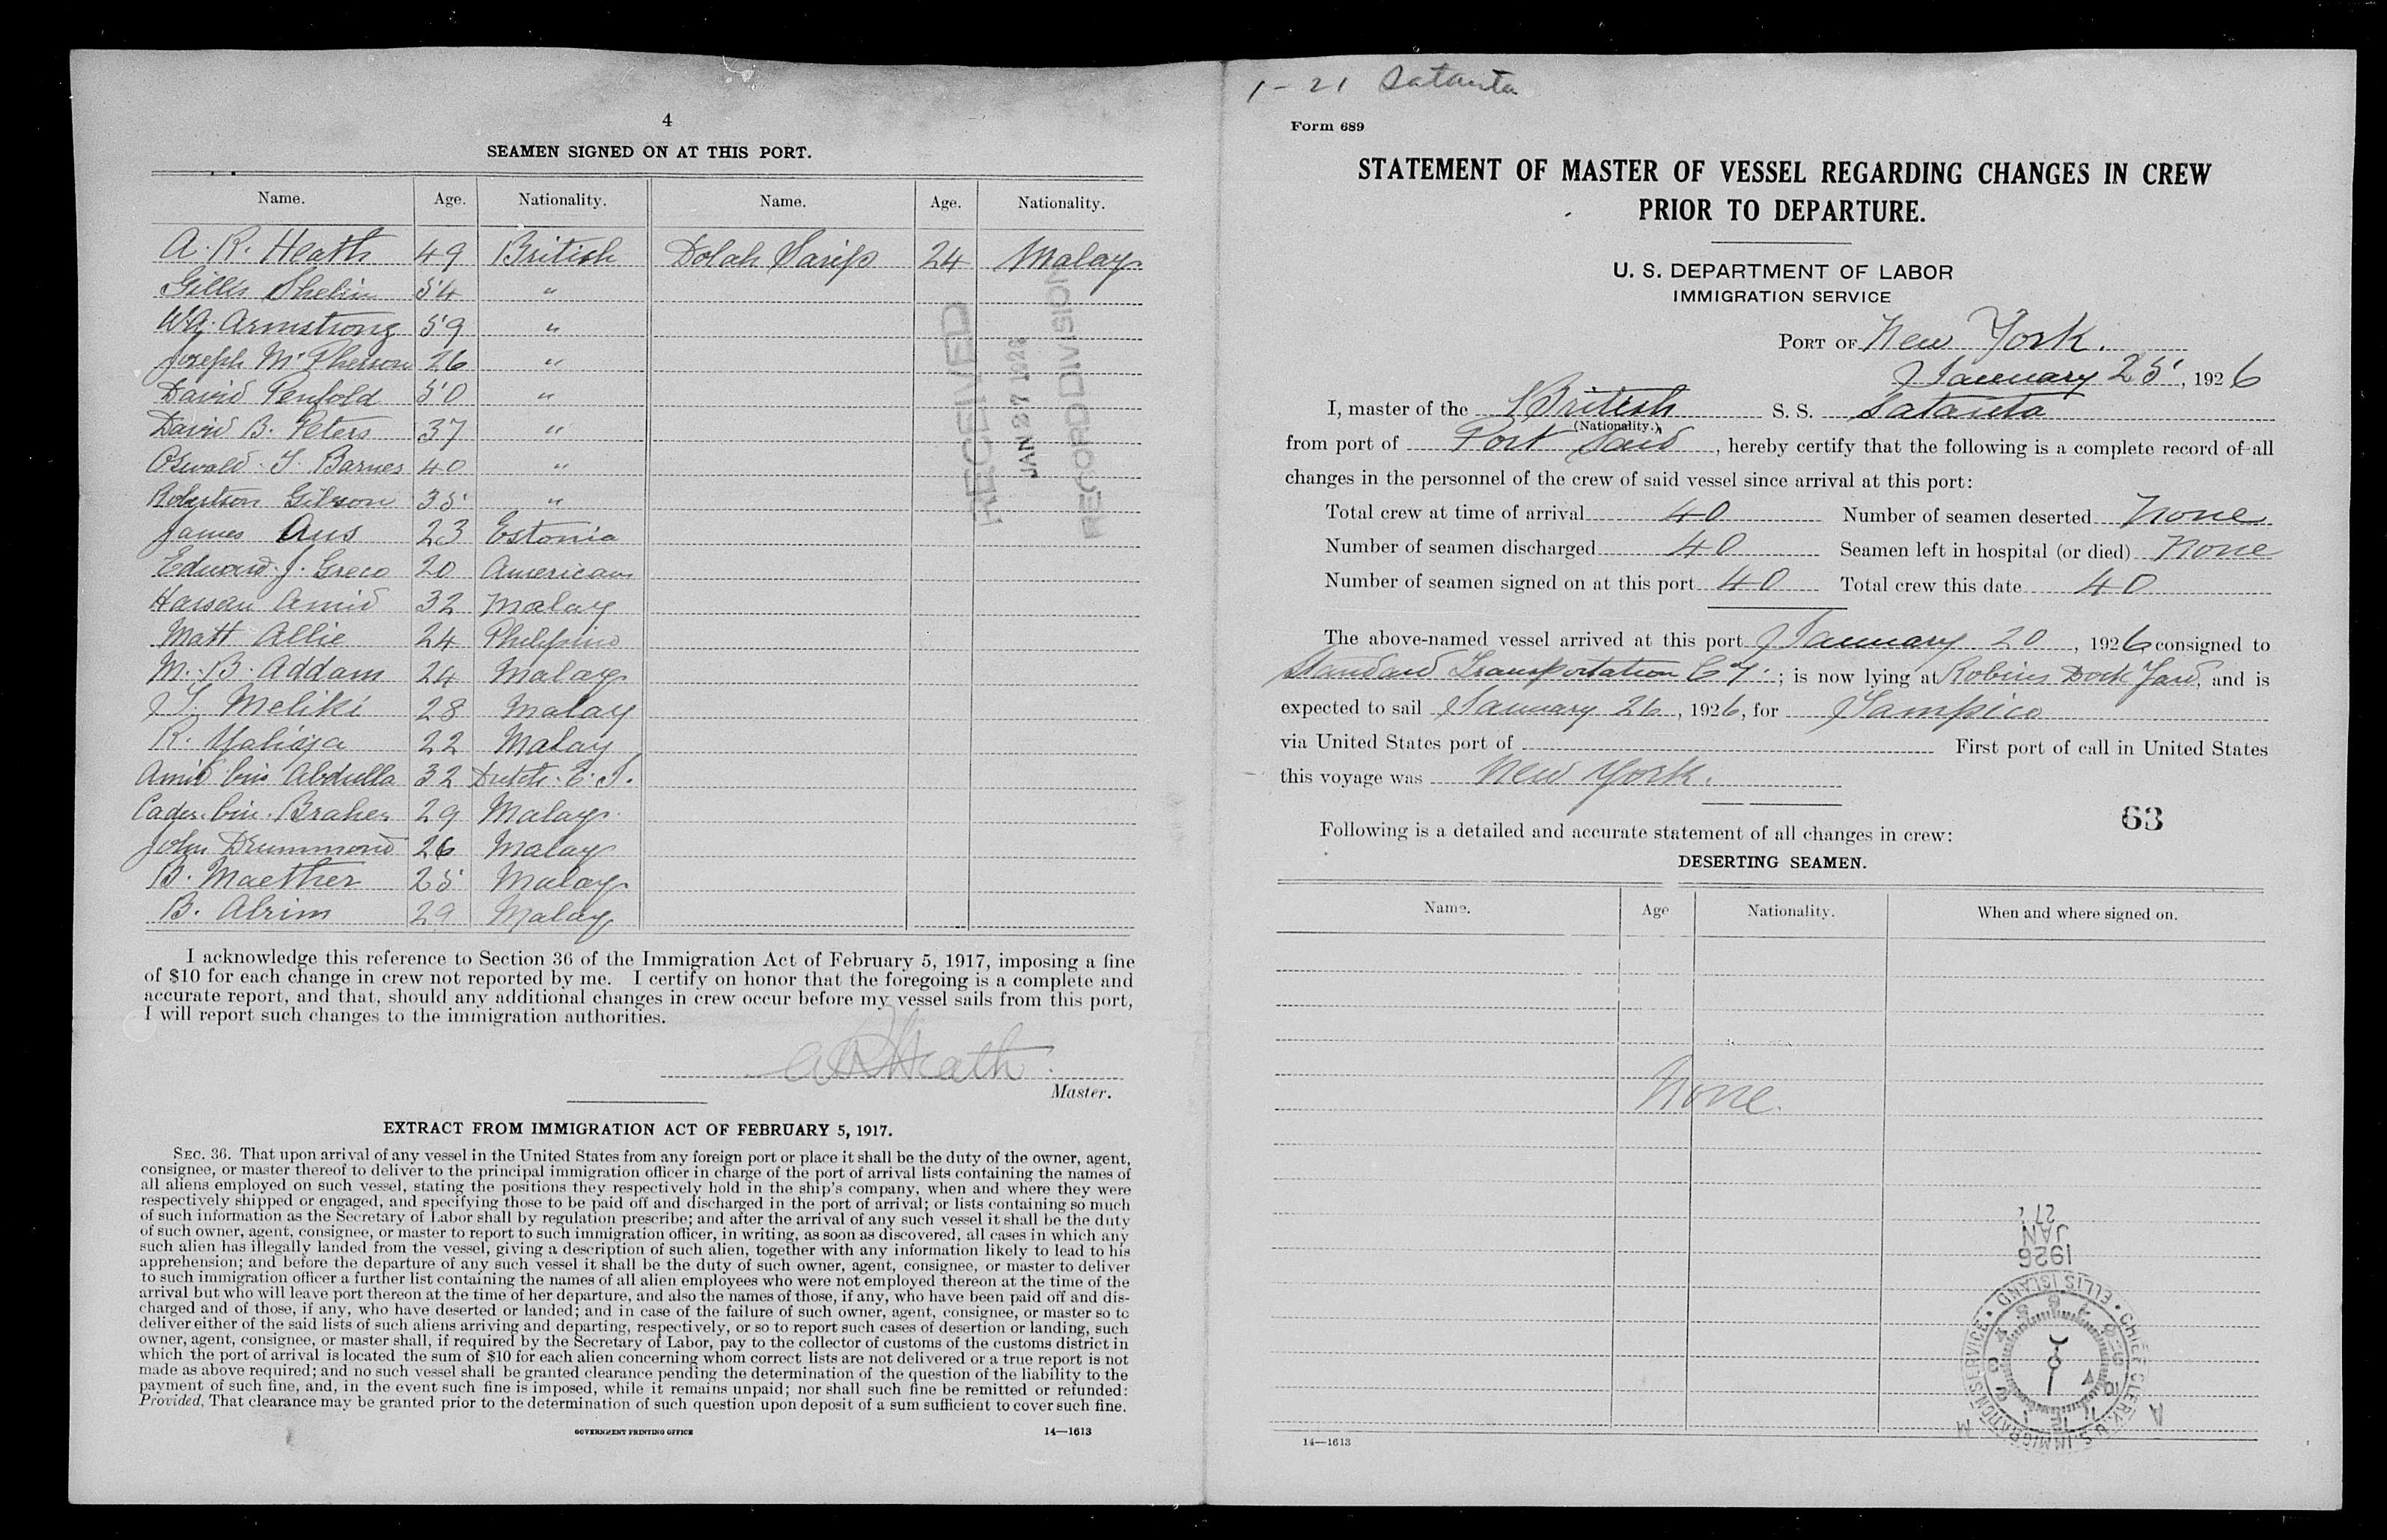 4
SEAMEN SIGNED ON AT THIS PORT.
Name. Age. Nationality. Name. Age. Nationality.
A. R. Heath 49 British Dolah Sarip 24 Malay
Gills Shelin 54 "
W.A. Armstrong 59 "
Joseph McPherson 26 "
David Penfold 50 "
David B. Peters 37 "
Oswald T. Barnes 40 "
Robertson Gibson 35 "
James Aus 23 Estonia
Edward J. Greco 20 American
Hassan Amid 32 Malay
Matt Allie 24 Philipino
M. B. Addam 24 Malay
J. Meliki 28 Malay
R. Yahiaja 22 Malay
Amid bin Abdulla 32 Dutch E. I.
Cader bin Braher 29 Malay
John Drummond 26 Malay
B. Maether 25 Malay
B. Alrim 29 Malay
RECEIVED
JAN 27 1926
RECORD DIVISION
I acknowledge this reference to Section 36 of the Immigration Act of February 5, 1917, imposing a fine
of $10 for each change in crew not reported by me. I certify on honor that the foregoing is a complete and
accurate report, and that, should any additional changes in crew occur before my vessel sails from this port,
I will report such changes to the immigration authorities.
A R Heath
Master.
EXTRACT FROM IMMIGRATION ACT OF FEBRUARY 5, 1917.
SEC. 36. That upon arrival of any vessel in the United States from any foreign port or place it shall be the duty of the owner, agent,
consignee, or master thereof to deliver to the principal immigration officer in charge of the port of arrival lists containing the names of
all aliens employed on such vessel, stating the positions they respectively hold in the ship's company, when and where they were
respectively shipped or engaged, and specifying those to be paid off and discharged in the port of arrival; or lists containing so much
of such information as the Secretary of Labor shall by regulation prescribe; and after the arrival of any such vessel it shall be the duty
of such owner, agent, consignee, or master to report to such immigration officer, in writing, as soon as discovered, all cases in which any
such alien has illegally landed from the vessel, giving a description of such alien, together with any information likely to lead to his
apprehension; and before the departure of any such vessel it shall be the duty of such owner, agent, consignee, or master to deliver
to such immigration officer a further list containing the names of all alien employees who were not employed thereon at the time of the
arrival but who will leave port thereon at the time of her departure, and also the names of those, if any, who have been paid off and dis-
charged and of those, if any, who have deserted or landed; and in case of the failure of such owner, agent, consignee, or master so to
deliver either of the said lists of such aliens arriving and departing, respectively, or so to report such cases of desertion or landing, such
owner, agent, consignee, or master shall, if required by the Secretary of Labor, pay to the collector of customs of the customs district in
which the port of arrival is located the sum of $10 for each alien concerning whom correct lists are not delivered or a true report is not
made as above required; and no such vessel shall be granted clearance pending the determination of the question of the liability to the
payment of such fine, and, in the event such fine is imposed, while it remains unpaid; nor shall such fine be remitted or refunded:
Provided, That clearance may be granted prior to the determination of such question upon deposit of a sum sufficient to cover such fine.
GOVERNMENT PRINTING OFFICE 14—1613
1 - 21 Satanta
Form 689
STATEMENT OF MASTER OF VESSEL REGARDING CHANGES IN CREW
PRIOR TO DEPARTURE.
U. S. DEPARTMENT OF LABOR
IMMIGRATION SERVICE
PORT OF New York.
January 25, 1926
I, master of the British S. S. Satanta
(Nationality.)
from port of Port Said, hereby certify that the following is a complete record of all
changes in the personnel of the crew of said vessel since arrival at this port:
Total crew at time of arrival 40 Number of seamen deserted None
Number of seamen discharged 40 Seamen left in hospital (or died) None
Number of seamen signed on at this port 40 Total crew this date 40
The above-named vessel arrived at this port January 20, 1926 consigned to
Standard Transportation Cy; is now lying at Robins Dock Yard, and is
expected to sail January 26, 1926, for Tampico
via United States port of First port of call in United States
this voyage was New York.
63
Following is a detailed and accurate statement of all changes in crew:
DESERTING SEAMEN.
Name. Age Nationality. When and where signed on.
None.
1926
JAN
27
CHIEF CLERK, U.S. IMMIGRATION SERVICE • ELLIS ISLAND •
14—1613